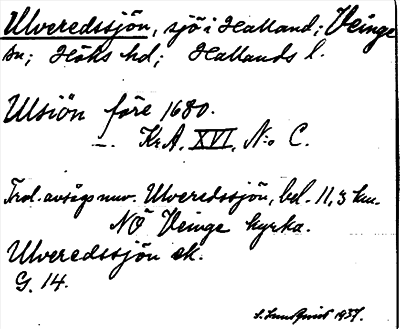 Ulveredssjön, sjö i Halland; Veinge
sn; Höks hd; Hallands l.
Ulsiön före 1680.
—. KrA. XVI, N:o C.
Trol. avsågs nuv. Ulveredssjön, bel. 11,3 km.
NÖ Veinge kyrka.
Ulveredssjön ek.
G. 14.
S. Lundquist 1937.